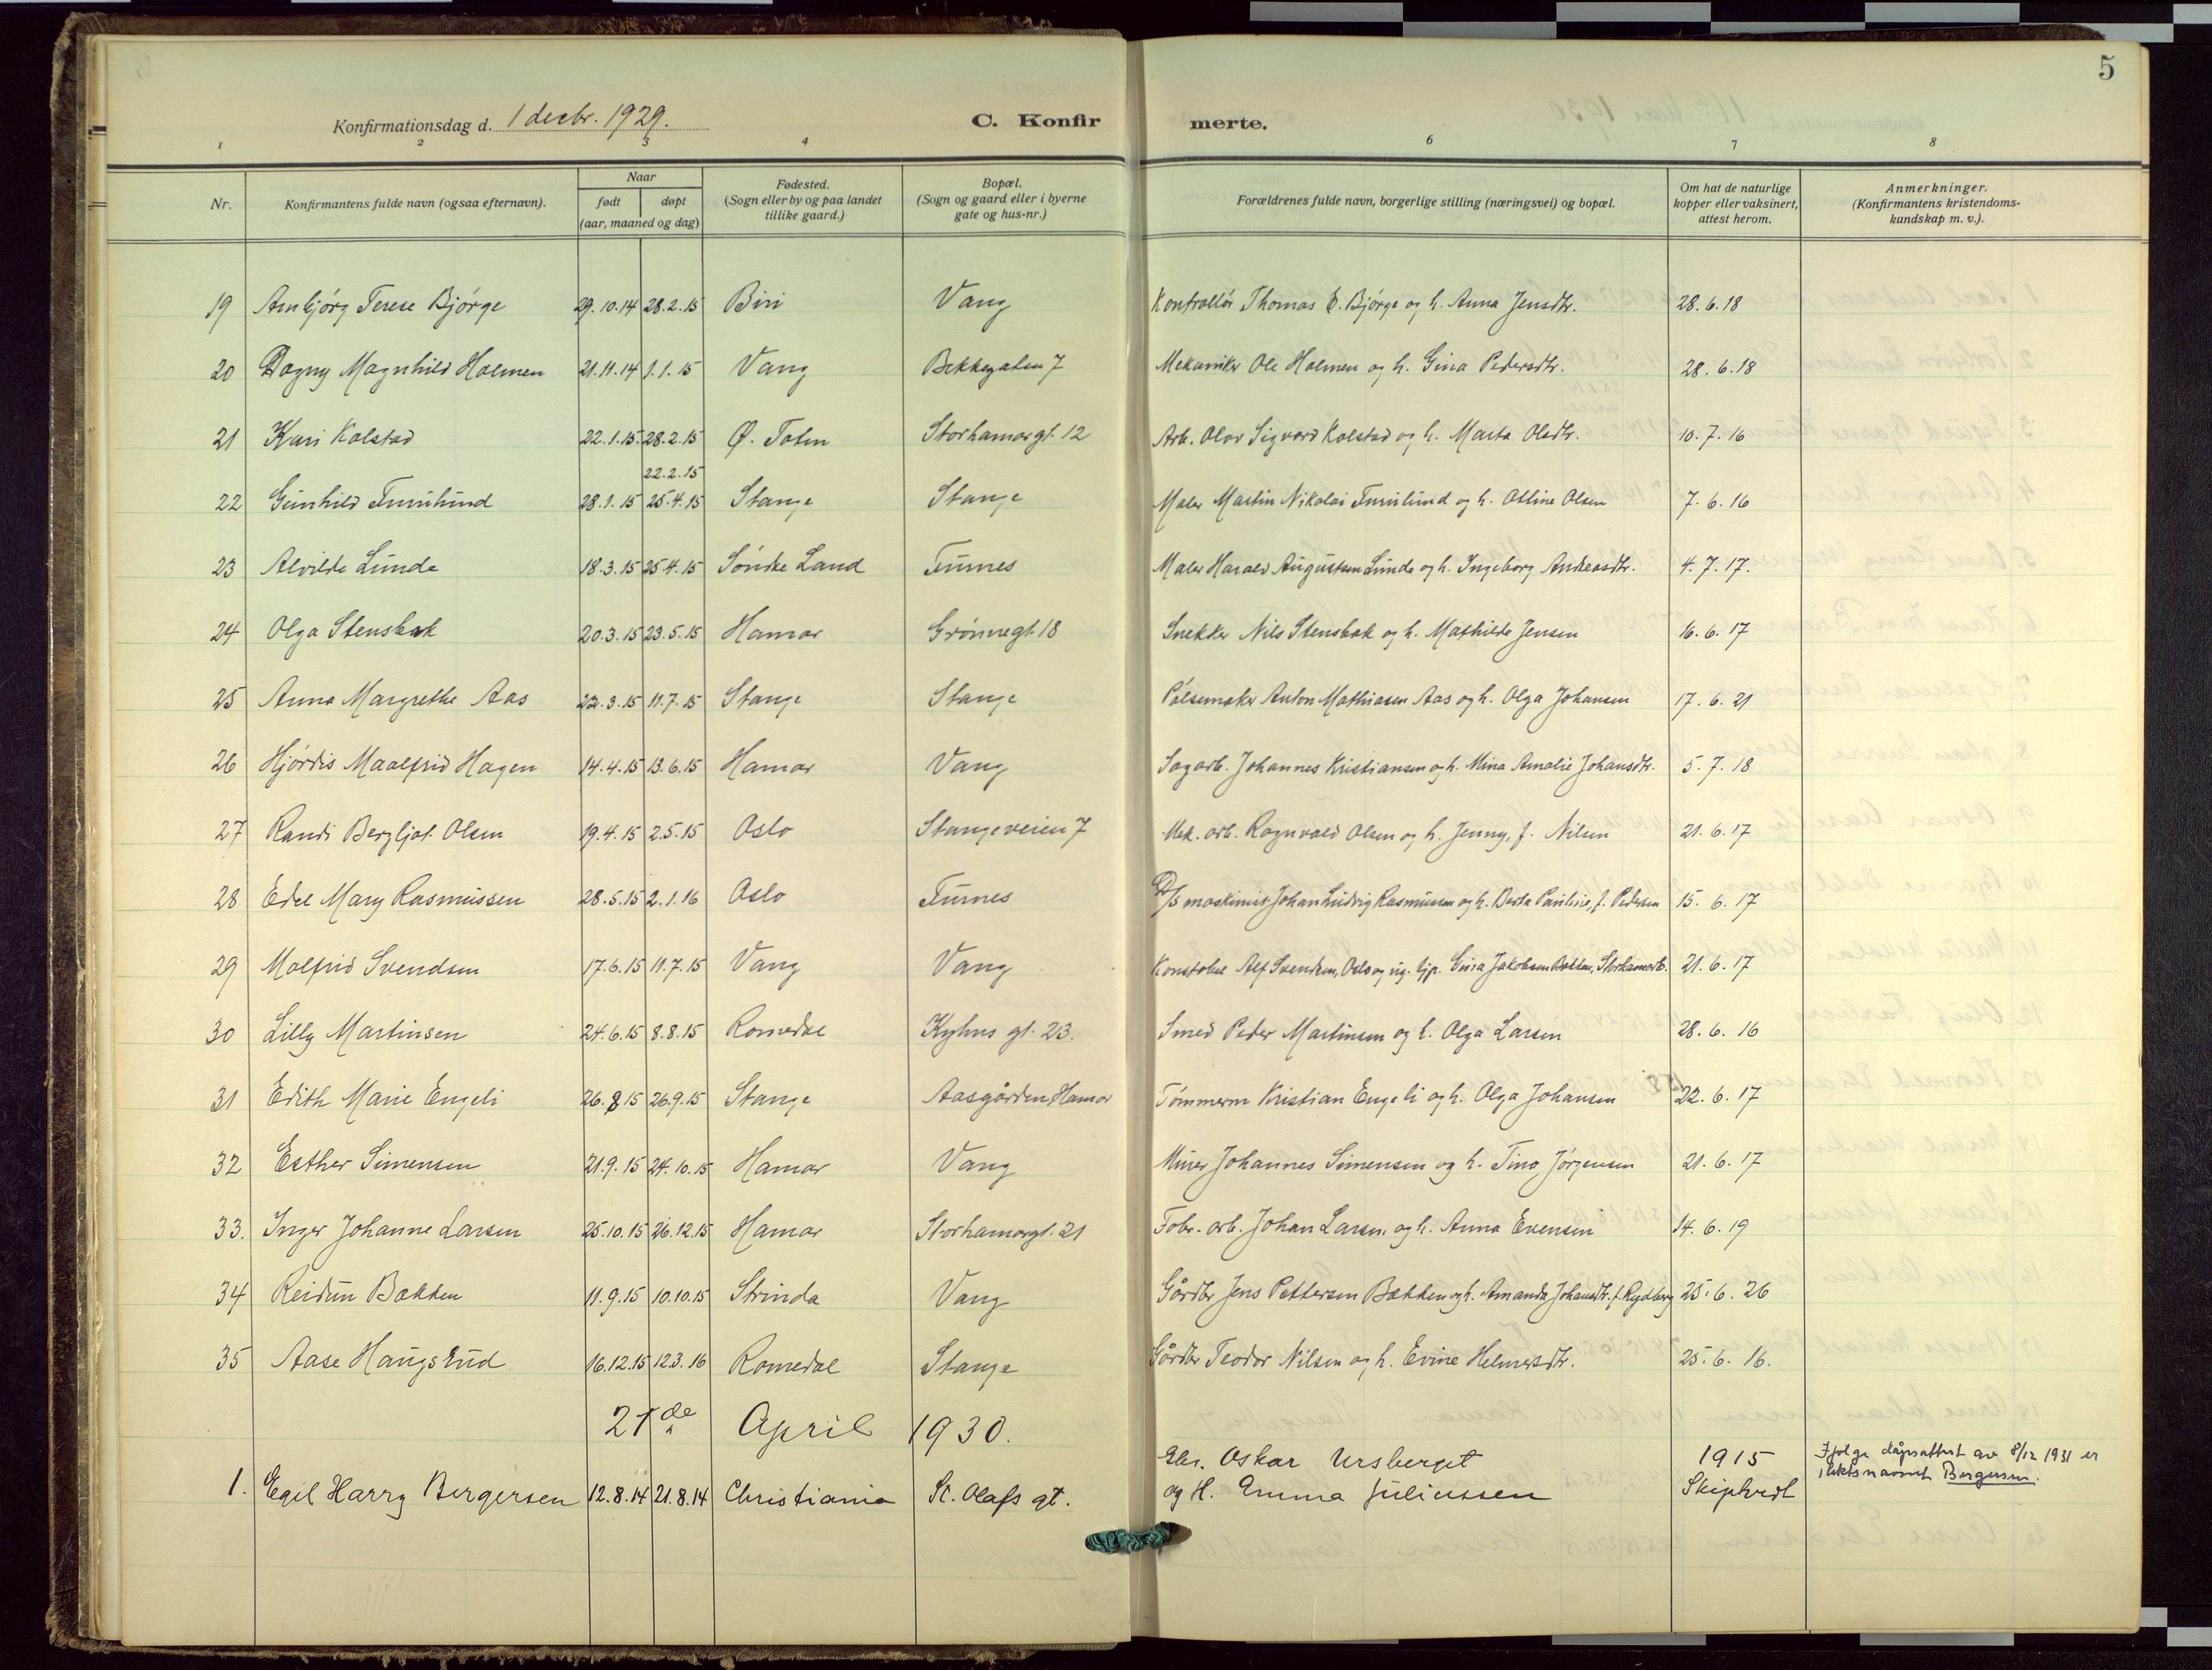 5
Konfirmationsdag d. 1 decbr. 1929. C. Konfirmerte.
1 2 3 4 6 7 8
Nr. Konfirmantens fulde navn (ogsaa efternavn). Naar født døpt (aar, maaned og dag) Fødested. (Sogn eller by og paa landet tillike gaard.) Bopæl. (Sogn og gaard eller i byerne gate og hus-nr.) Forældrenes fulde navn, borgerlige stilling (næringsvei) og bopæl. Om hat de naturlige kopper eller vaksinert, attest herom. Anmerkninger. (Konfirmantens kristendomskundskap m. v.).
19 Arnbjörg Terese Bjórge 29.10.14 28.2.15 Biri Vang Kontrollör Thomas E. Bjórge og h. Anna Jensdtr. 28.6.18
20 Dagny Magnhild Holmen 21.11.14 1.1.15 Vang Bekkegaten 7 Mekaniker Ole Holmen og h. Gina Pedersdtr. 28.6.18
21 Kari Kolstad 22.1.15 28.2.15 Ø. Toten Storhamargt. 12 Arb. Olav Sigvard Kolstad og h. Marta Olsdtr. 10.7.16
22 Gunhild Furulund 28.1.15 22.2.15 25.4.15 Stange Stange Maler Martin Nikolai Furulund og h. Otline Olsen 7.6.16
23 Alvilde Lunde 18.3.15 25.4.15 Söndre Land Furnes Maler Harald Augustsen Lunde og h. Ingeborg Andreasdtr. 4.7.17.
24 Olga Stensbak 20.3.15 23.5.15 Hamar Grónnegt 18 Snekker Nils Stensbak og h. Mathilde Jensen 16.6.17
25 Anna Margrethe Aas 22.3.15 11.7.15 Stange Stange Pólsemaker Anton Mathiasen Aas og h. Olga Johansen 17.6.21
26 Hjórdis Maalfrid Hagen 14.4.15 13.6.15 Hamar Vang Sagarb. Johannes Kristiansen og h. Mina Amalie Johansdtr. 5.7.18
27 Randi Bergljot Olsen 19.4.15 2.5.15 Oslo Stangeveien 7 Mek. arb. Ragnvald Olsen og h. Jenny, f. Nilsen 21.6.17
28 Edel Mary Rasmussen 28.5.15 2.1.16 Oslo Furnes D/S maskinist Johan Ludvig Rasmussen og h. Berta Pauline, f. Pedersen 15.6.17
29 Molfrid Svendsen 17.6.15 11.7.15 Vang Vang Konstabel Alf Svendsen, Oslo og ug. tjp. Gina Jakobsen Bakken, 21.6.17
30 Lilly Martinsen 24.6.15 8.8.15 Romedal Kyhns gt. 23. Smed Peder Martinsen og h. Olga Larsen 28.6.16
31 Edith Marie Engeli 26.8.15 26.9.15 Stange Aasgården, Hamar Tómmerm Kristian Engeli og h. Olga Johansen 22.6.17
32 Esther Simensen 21.9.15 24.10.15 Hamar Vang Murer Johannes Simensen og h. Tina Jórgensen 21.6.17
33. Inger Johanne Larsen 25.10.15 26.12.15 Hamar Storhamargt. 21 Fabr. arb. Johan Larsen og h. Anna Evensen 14.6.19
34 Reidun Bakken 11.9.15 10.10.15 Strinda Vang Gårdbr Jens Pettersen Bakken og h. Amanda Johansdtr. f. Rydberg 25.6.26
35 Aase Haugsrud 16.12.15 12.3.16 Romedal Stange Gårdbr Teodor Nilsen og h. Evine Helmersdtr. 25.6.16.
21de April 1930.
1. Egil Harry Bergersen 12.8.14 21.8.14 Christiania St. Olafs gt. Oskar Ursberget og H. Emma Juliussen 1915 Skiptvedt Ifølge dåpsattest av 8/12 1931 er slektsnavnet Bergersen.